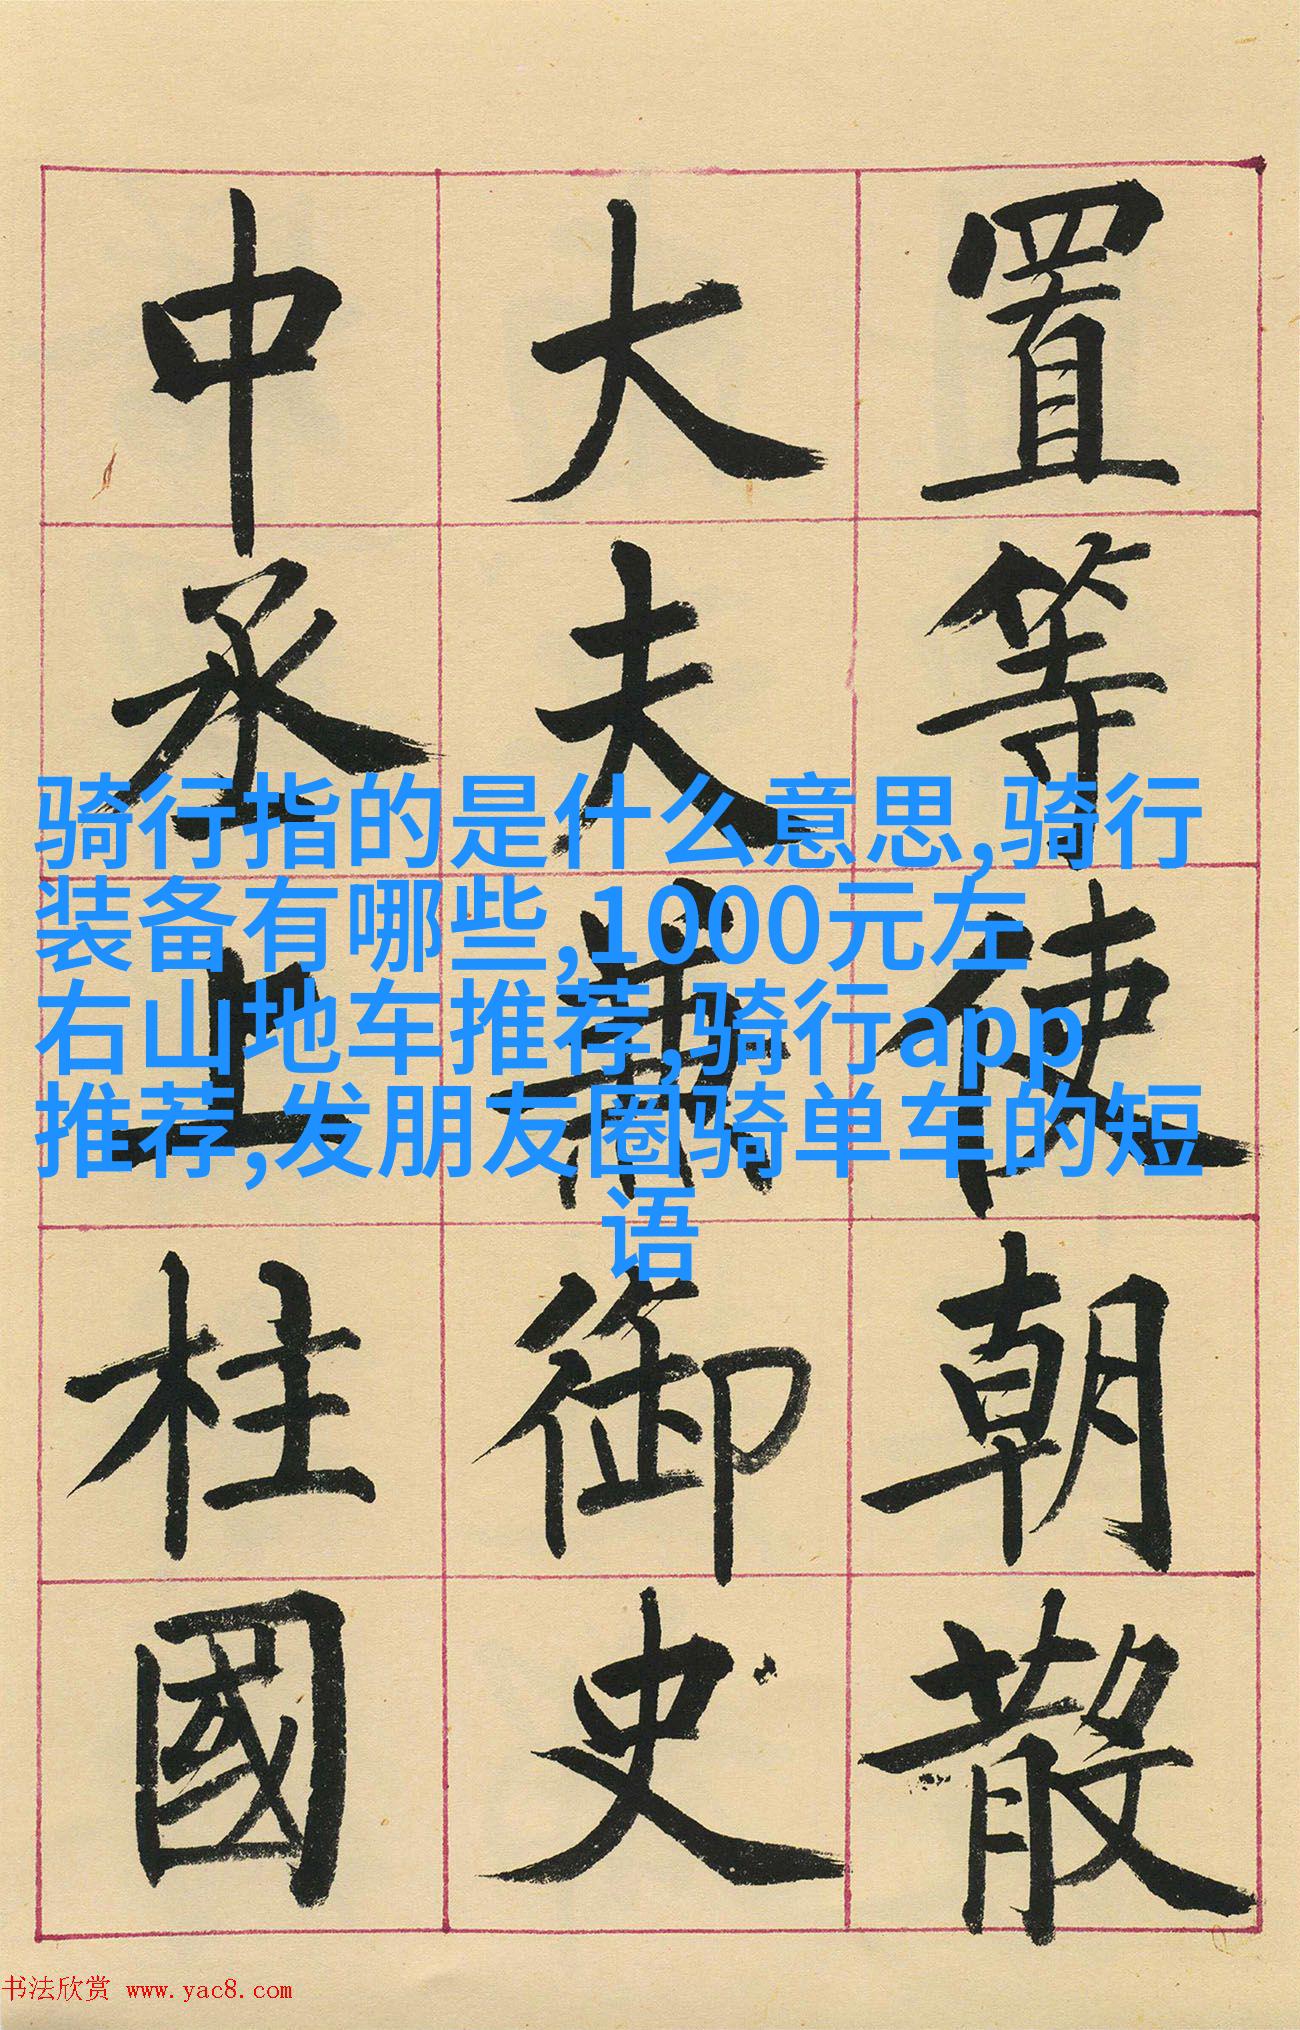 置等使朝散
大夫兼御史
中丞上柱國
骑行指的是什么意思,骑行
装备有哪些,1000元左
右山地车推荐,骑行app
推荐,发朋友圈骑单车的短
语
书法欣赏 www.yac8.com